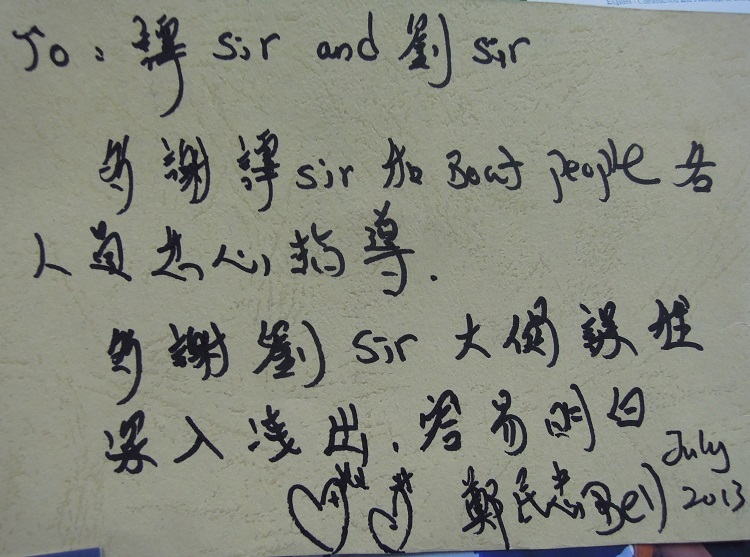 To: 譚 sir and 劉 sir
多謝譚 sir 和 Boat people 各
人員热心指導.
多謝劉 sir 大
深入淺出. 容易明白
鄭民忠 Ben July
2013